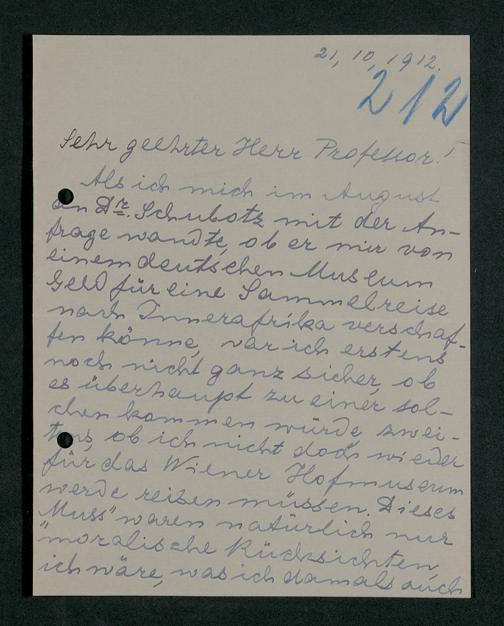 21, 10, 1912.
212
Sehr geehrter Herr Professor!
Als ich mich im August
an Dr. Schubotz mit der An-
frage wandte, ob er mir von
einem deutschen Museum
Geld für eine Sammelreise
nach Innerafrika verschaf-
fen könne, war ich erstens
noch nicht ganz sicher, ob
es überhaupt zu einer sol-
chen kommen würde, zwei-
tens, ob ich nicht doch wieder
für das Wiener Hofmuseum
werde reisen müssen. Dieses
"Muss" waren natürlich nur
"moralische Rücksichten,
ich wäre, was ich damals auch